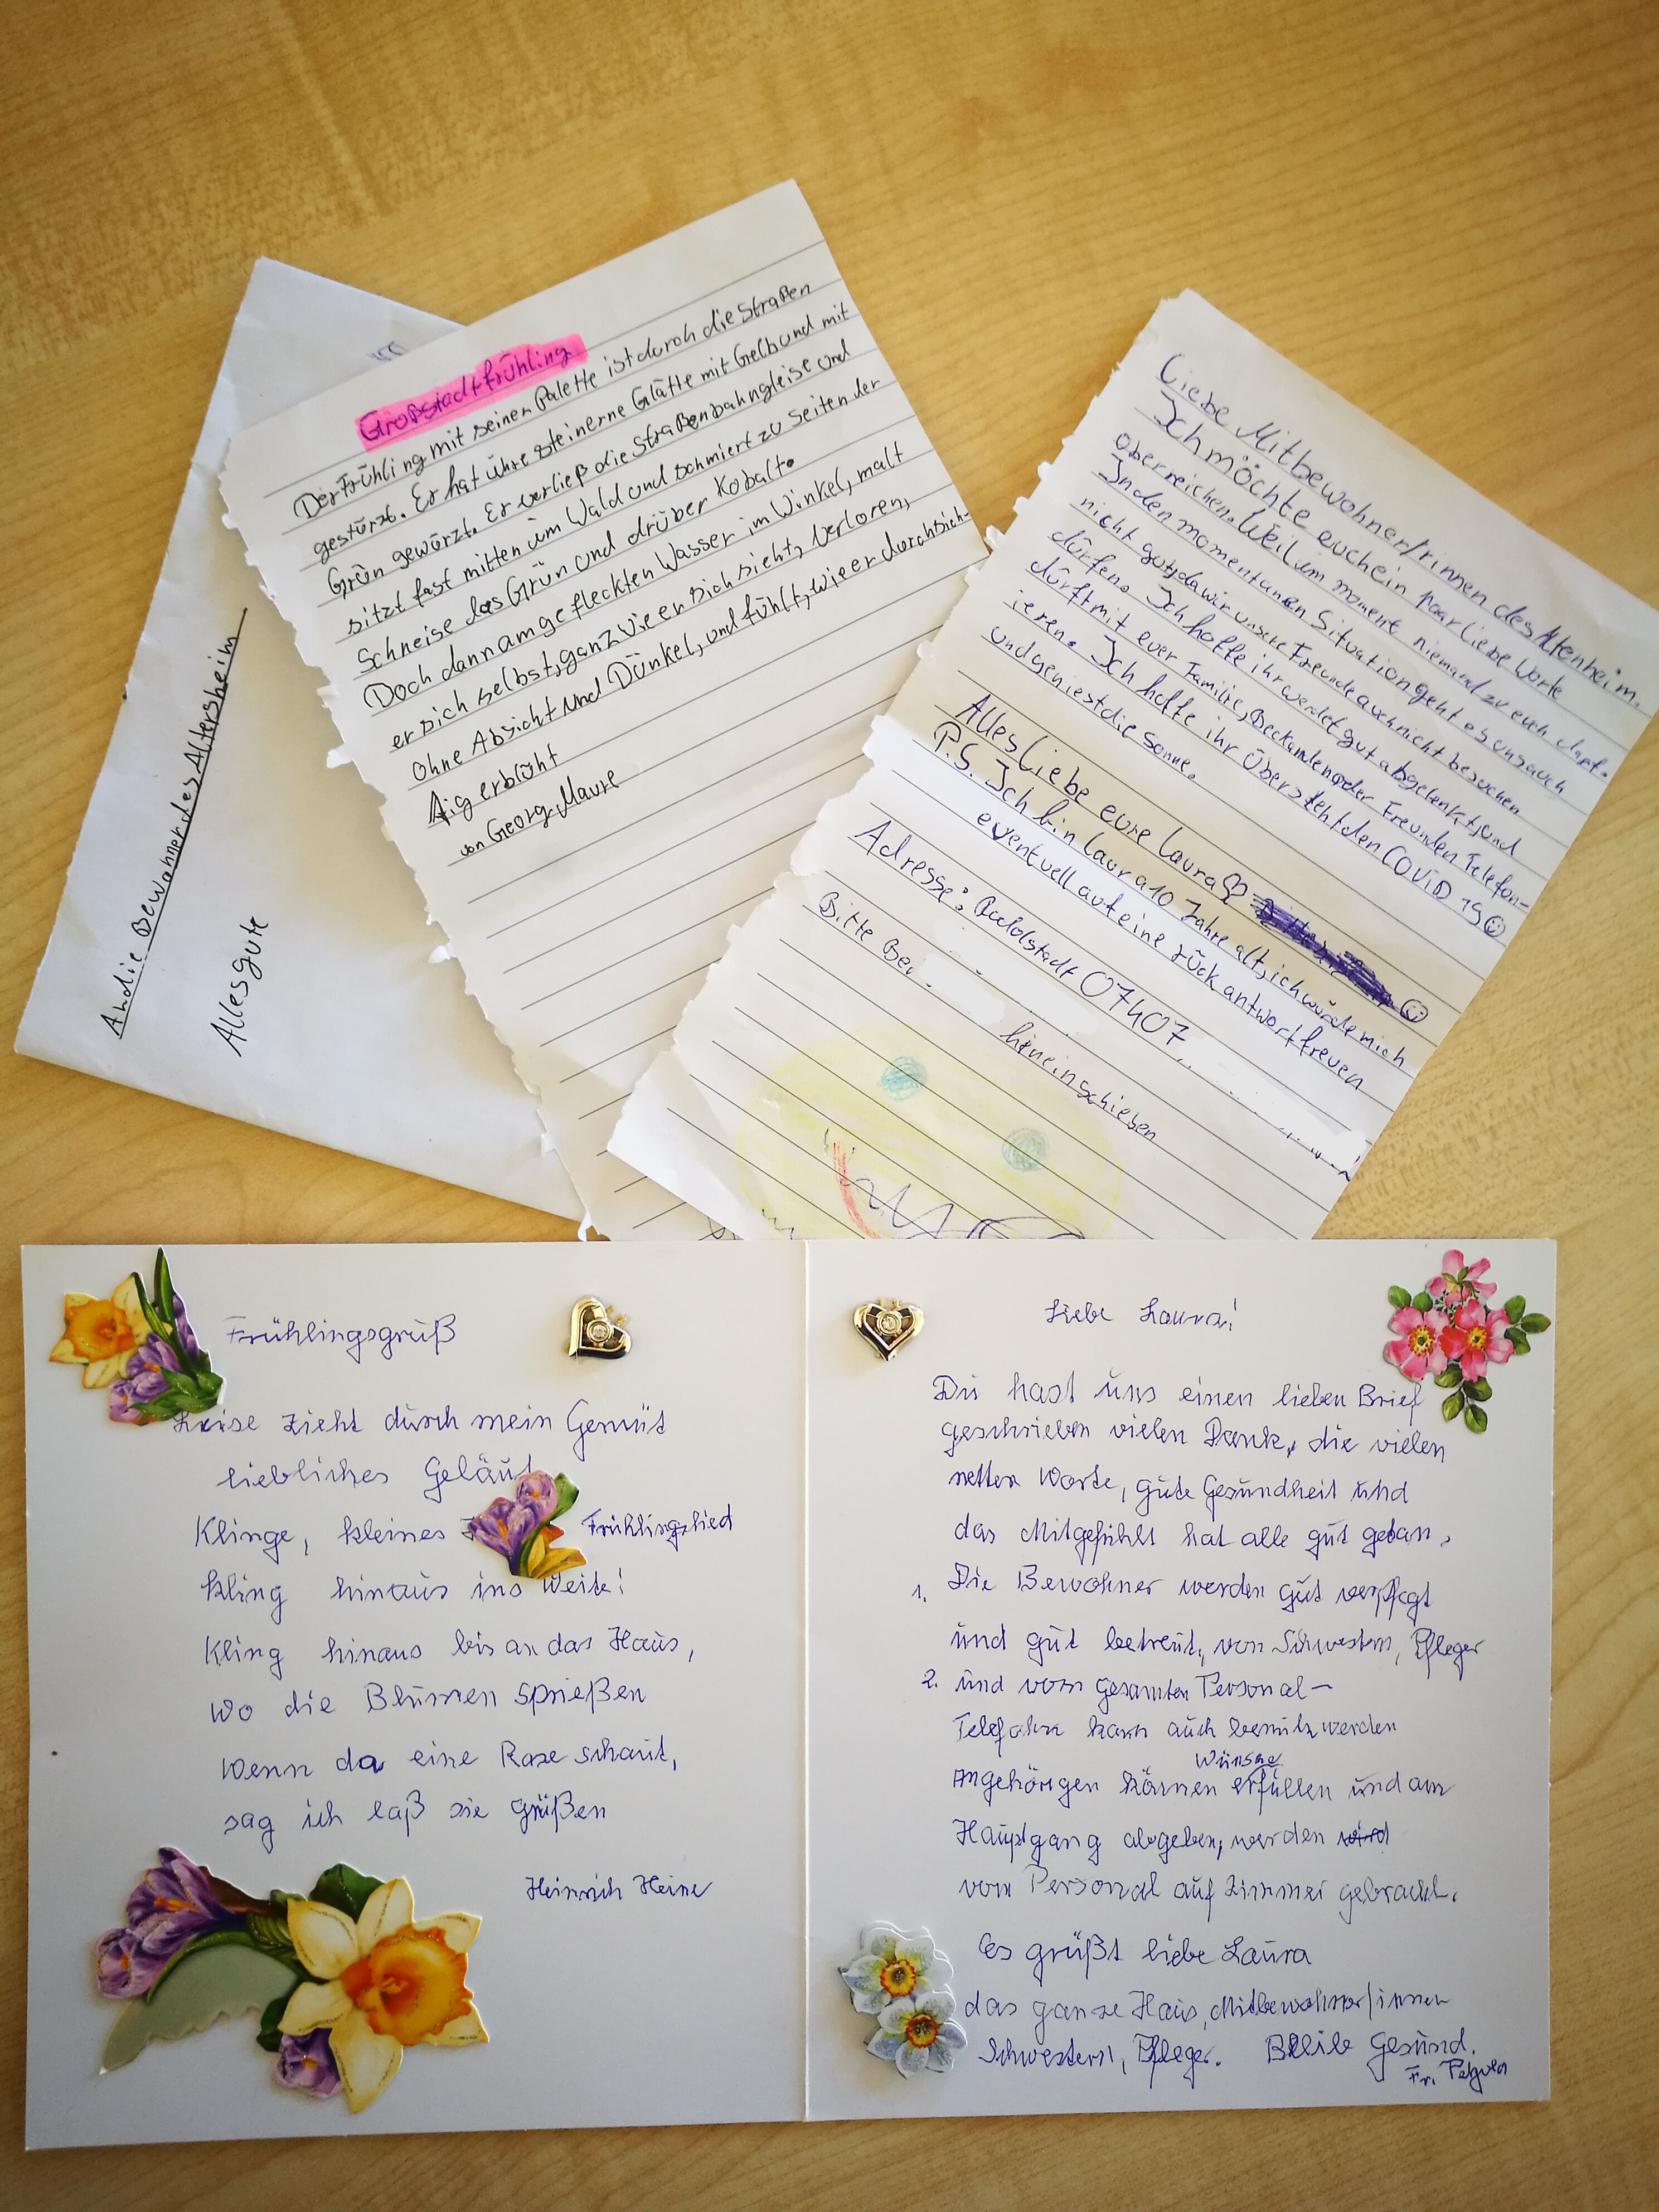 An die Bewohner des Altersheim
Alles gute
Großstadtfrühling
Der Frühling mit seiner Palette ist durch die Straßen
gestürzt. Er hat ihre steinerne Glätte mit Gelb und mit
Grün gewürzt. Er verließ die Straßenbahngleise und
sitzt fast mitten im Wald und schmiert zu seiten der
Schneise das Grün und drüber Kobalt.
Doch dann am gefleckten Wasser im Winkel, malt
er sich selbst, ganz wie er sich sieht, verloren,
Ohne Absicht und Dünkel, und fühlt, wie er durchsich-
tig erblüht
von Georg Maure
Liebe Mitbewohner/rinnen des Altenheim.
Ich möchte euch ein paar liebe Worte
überreichen. Weil im moment niemand zu euch darf.
In den momentanen Situation geht es uns auch
nicht gut, da wir unsere Freunde auch nicht besuchen
dürfen. Ich hoffe ihr werdet gut abgelenkt, und
dürft mit euer Familie, Beckanden oder Freunden Telefon-
ieren. Ich hoffe ihr übersteht den COVID 19
und geniest die sonne.
Alles Liebe eure Laura
P.S. Ich bin Laura 10 Jahre alt, ich würde mich
eventuell auf eine rück antwort freuen
Adresse: Rudolstadt 07407
Bitte Bei
hineinschieben
Frühlingsgruß
Leise zieht durch mein Gemüt
liebliches Geläut
Klinge, kleines Frühlingslied
kling hinaus ins Weite!
Kling hinaus bis an das Haus,
wo die Blumen sprießen
Wenn da eine Rose schaut,
sag ich laß sie grüßen
Heinrich Heine
Liebe Laura!
Du hast uns einen lieben Brief
geschrieben vielen Dank, die vielen
netten Worte, gute Gesundheit und
das Mitgefühl hat alle gut getan.
1. Die Bewohner werden gut verpflegt
und gut betreut, von Schwestern, Pfleger
2. und vom gesamten Personal –
Telefone kann auch benutz werden
Wünsche
Angehörigen können erfüllen und am
Hauptgang abgeben, werden wird
vom Personal auf Zimmer gebracht.
Es grüßt liebe Laura
das ganze Haus, Mitbewohner/innen
Schwestern, Pfleger. Bleib Gesund.
Fr.